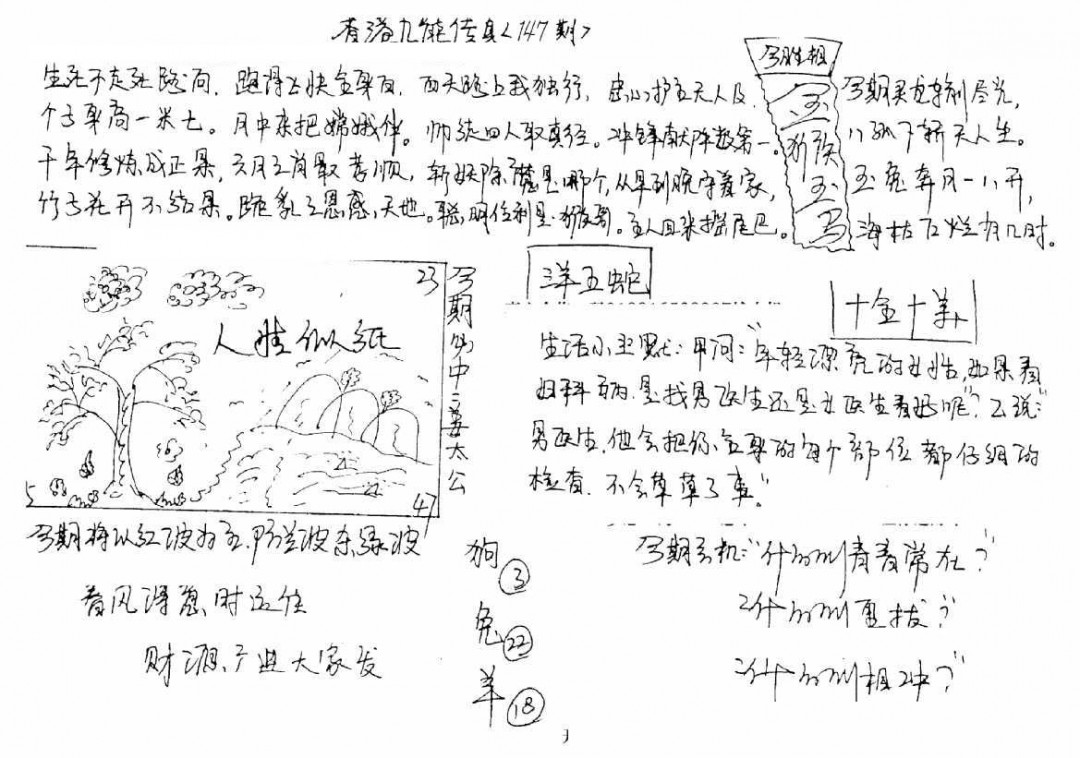 香港九龍传真<147期>
生死不走死路向,跑得上快全身白,西天路上我独行,忠心护主无人及,
个子身高一米七。月中来把嫦娥伴。师徒四人取真经。冲锋献阵数第一。
千年修炼成正果,六月之前最孝顺,斩妖除魔是哪个,从早到晚守着家,
竹子花开不结果。跪乳之恩感天地。聪明伶利是猴哥。主人回来摇尾巴。
今胜相
金猴玉马
今期
八
玉兔奔月一八开,
海枯石烂有几时。
23
人胜似纸
5
47
今期必中三姜太公
三羊五蛇
十金十羊
生活小主默:甲问:"年轻漂亮的女性,如果看
妇科病.是找男医生还是女医生看好呢?"乙说:"
男医生.他会把你全身的每个部位都仔细的
检查.不会草草了事"
今期将以红波为主.防兰波杀绿波
春风得意时运佳
财源产业大家发
狗③
兔㉒
羊⑱
今期玄机:"什么叫青春常在?"